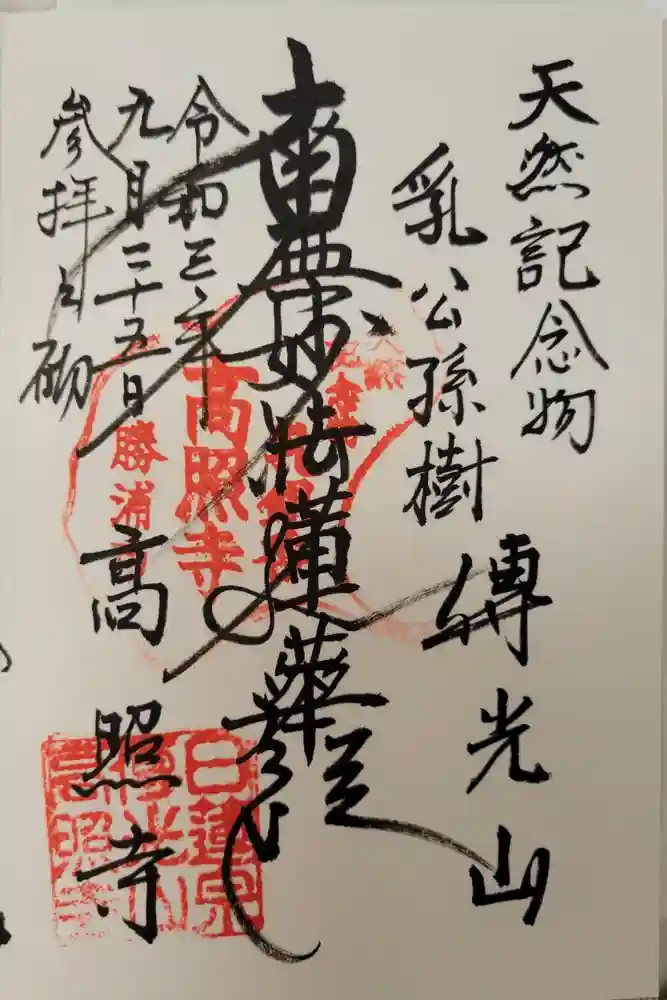 天然記念物
乳公孫樹
傳光山
南無妙法蓮華経
令和三年
九月二十五日
參拝之砌
高照寺
高照寺
勝浦
日蓮宗
傳光山
高照寺